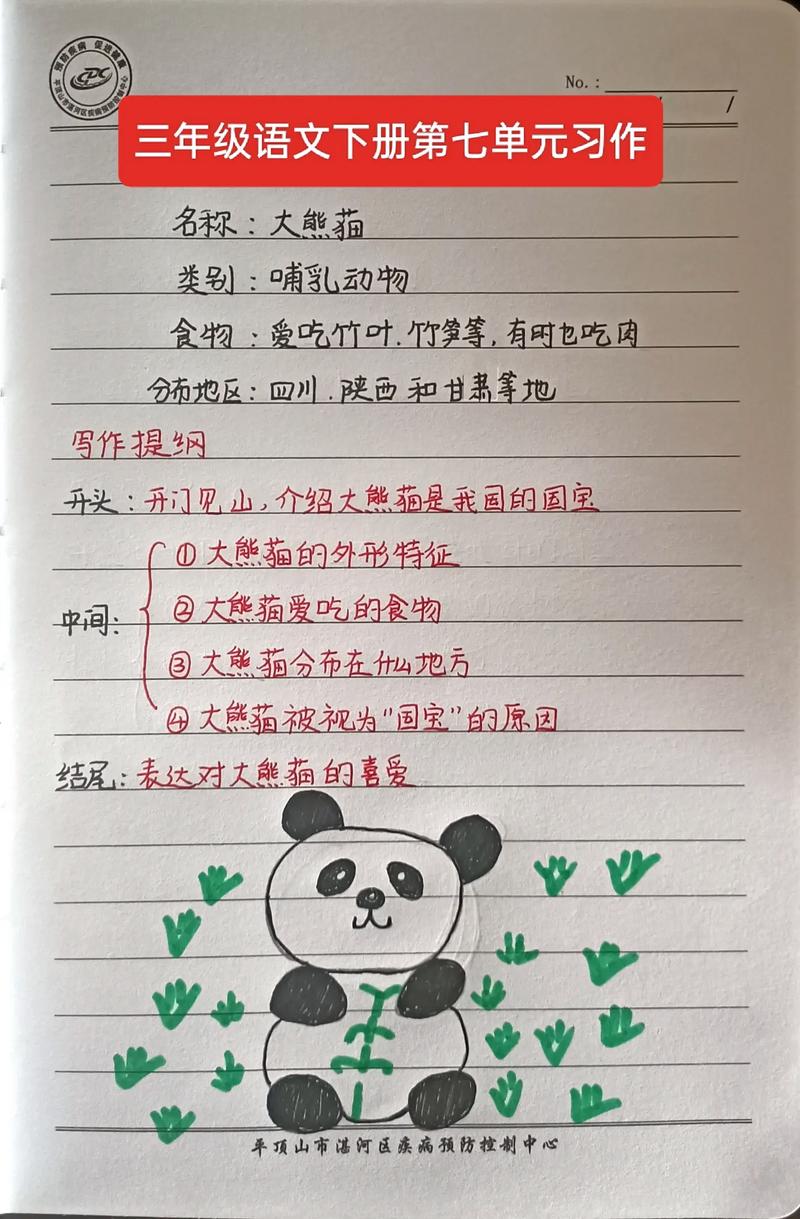 预防疾病 促进健康
CDC
平顶山市湛河区疾病预防控制中心
No.:
/ /
三年级语文下册第七单元习作
名称：大熊猫
类别：哺乳动物
食物：爱吃竹叶.竹笋等,有时也吃肉
分布地区：四川.陕西和甘肃等地
写作提纲
开头：开门见山,介绍大熊猫是我国的国宝
① 大熊猫的外形特征
② 大熊猫爱吃的食物
中间：
③ 大熊猫分布在什么地方
④ 大熊猫被视为“国宝”的原因
结尾：表达对大熊猫的喜爱
平顶山市湛河区疾病预防控制中心